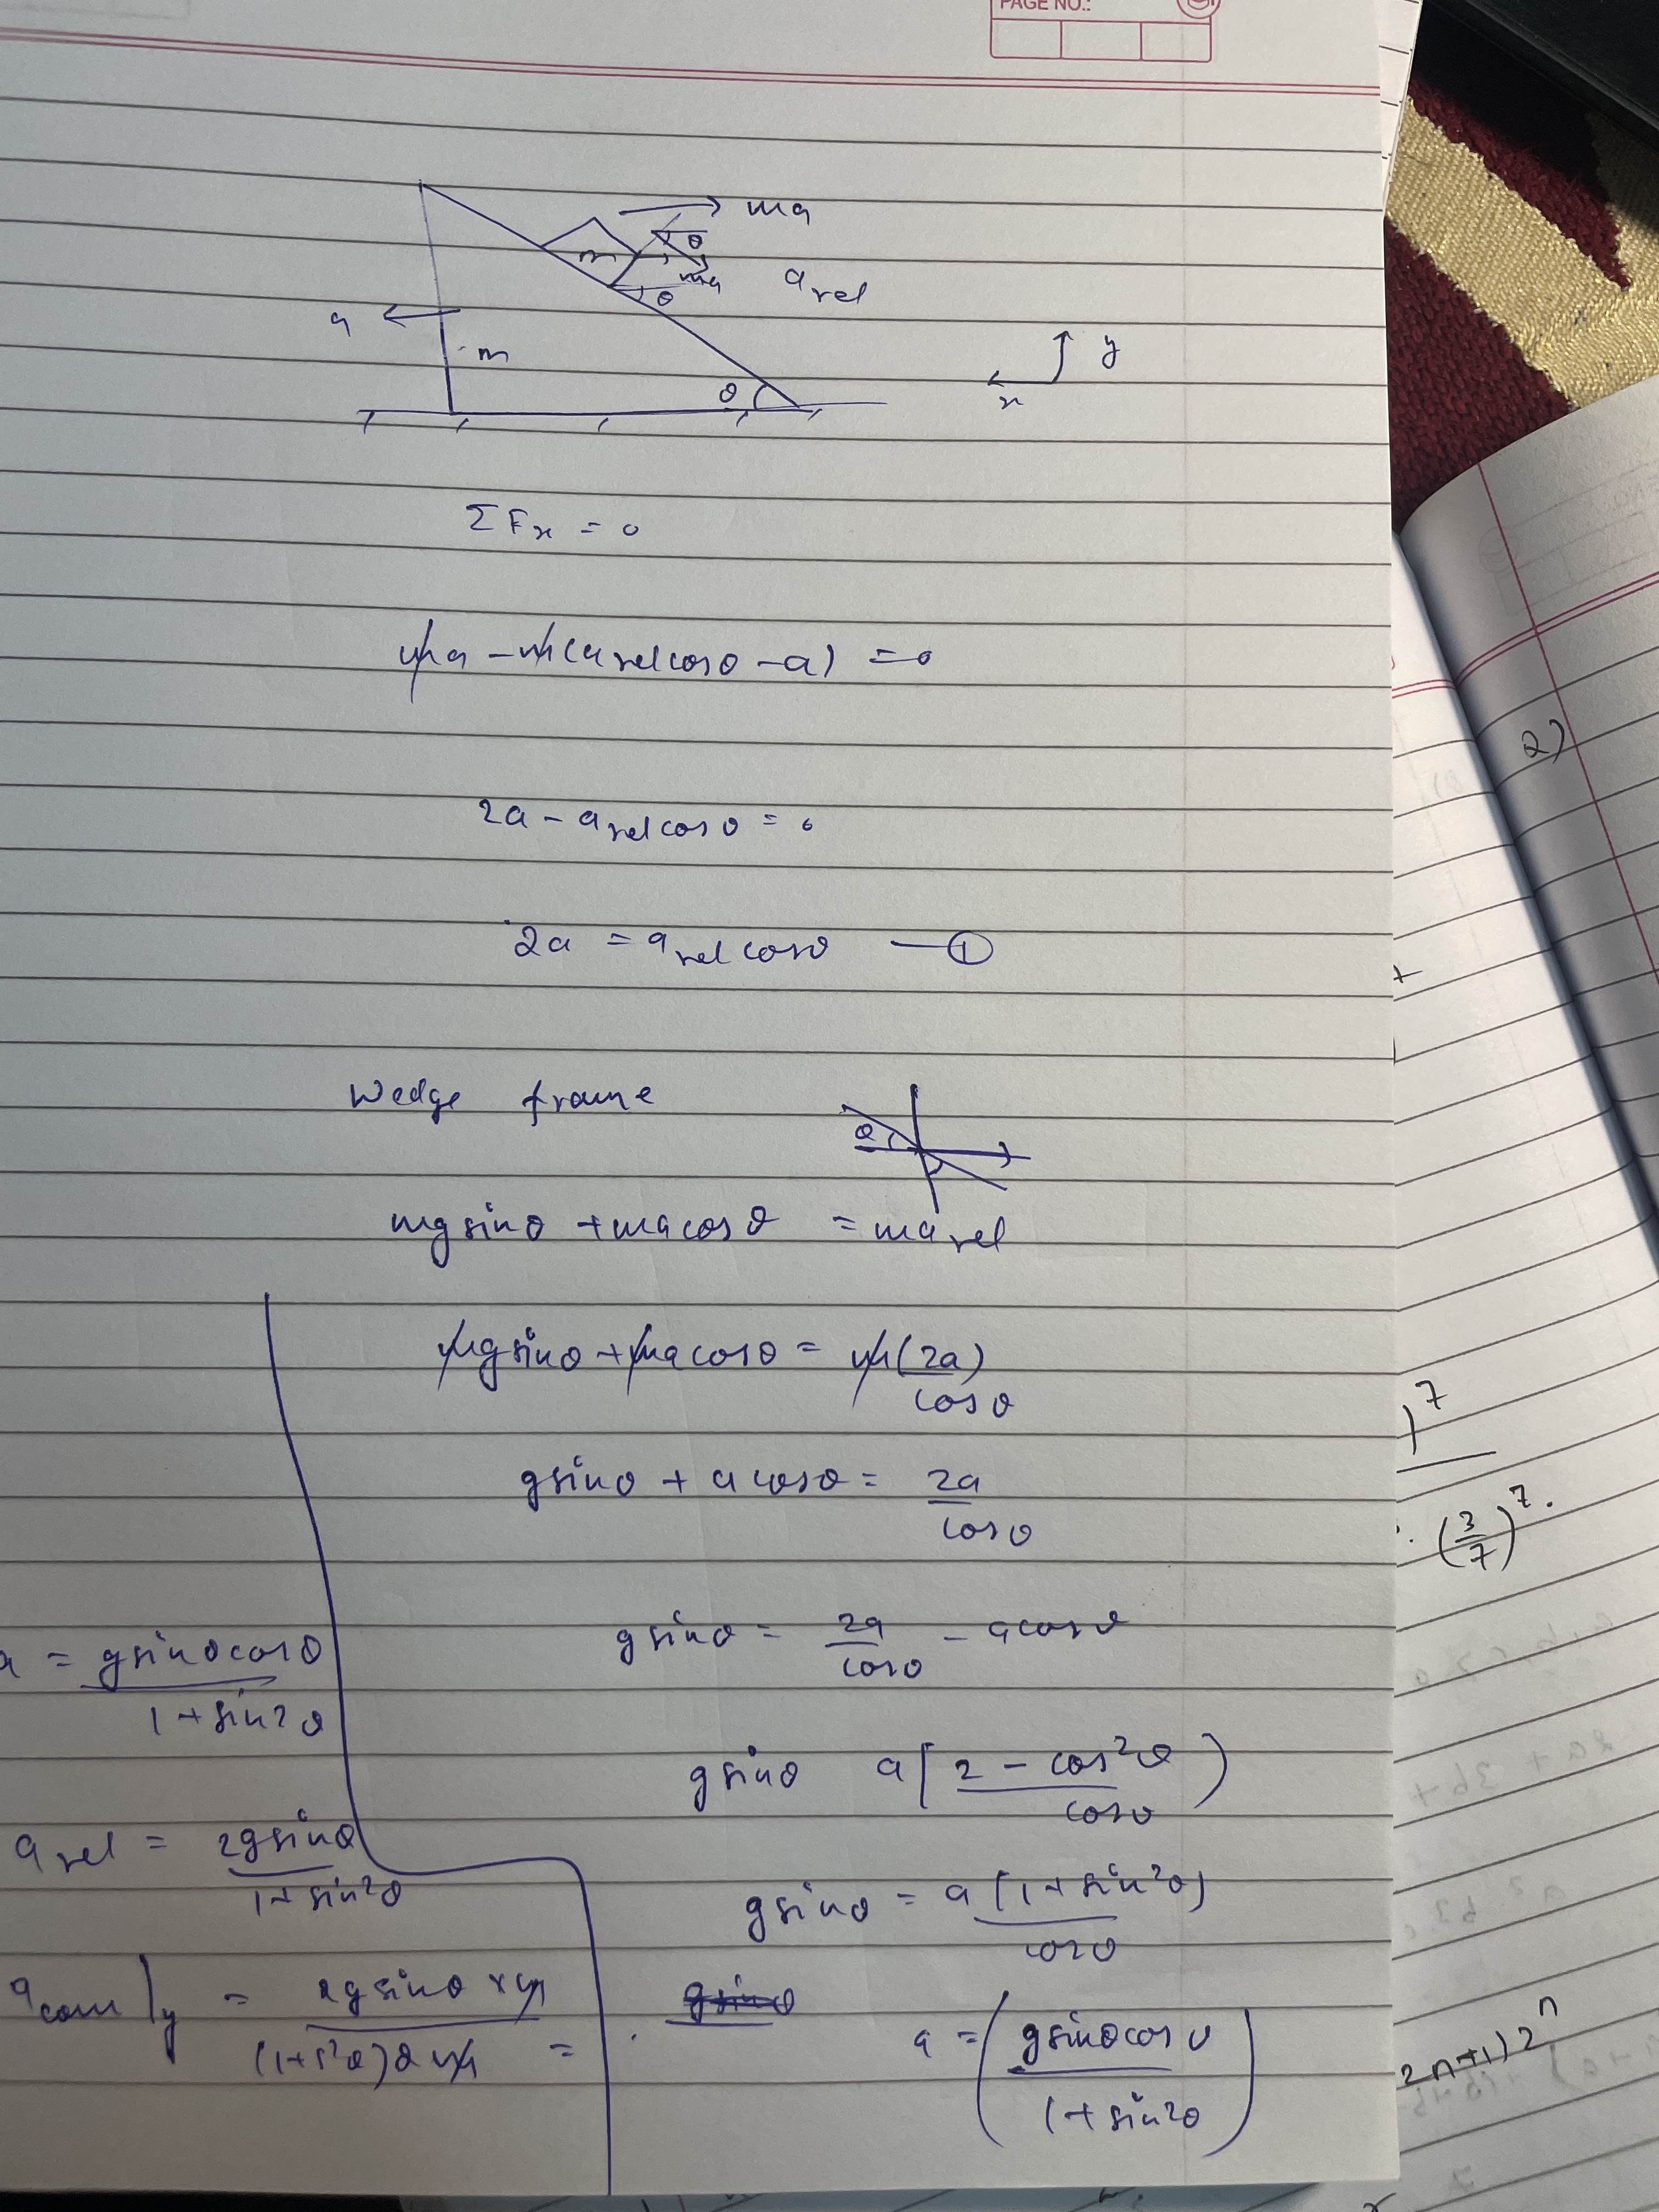 PAGE NO.:
ma
θ
m
ma
a rel
θ
a
m
y
x
θ
ΣFx = 0
ma - m(a rel cosθ - a) = 0
2a - a rel cosθ = 0
2a = a rel cosθ — ①
Wedge frame
θ
mg sinθ + ma cosθ = ma rel
mg sinθ + ma cosθ = m(2a)/cosθ
g sinθ + a cosθ = 2a/cosθ
g sinθ = 2a/cosθ - a cosθ
g sinθ a[2 - cos²θ/cosθ)
g sinθ = a(1 + sin²θ)/cosθ
g sinθ
a = (g sinθ cosθ/1 + sin²θ)
a = g sinθ cosθ/1 + sin²θ
a rel = 2g sinθ/1 + sin²θ
a com|y = 2g sinθ × m/(1 + s²θ)2m =
2)
)⁷
(3/7)⁷.
2n+1)2ⁿ